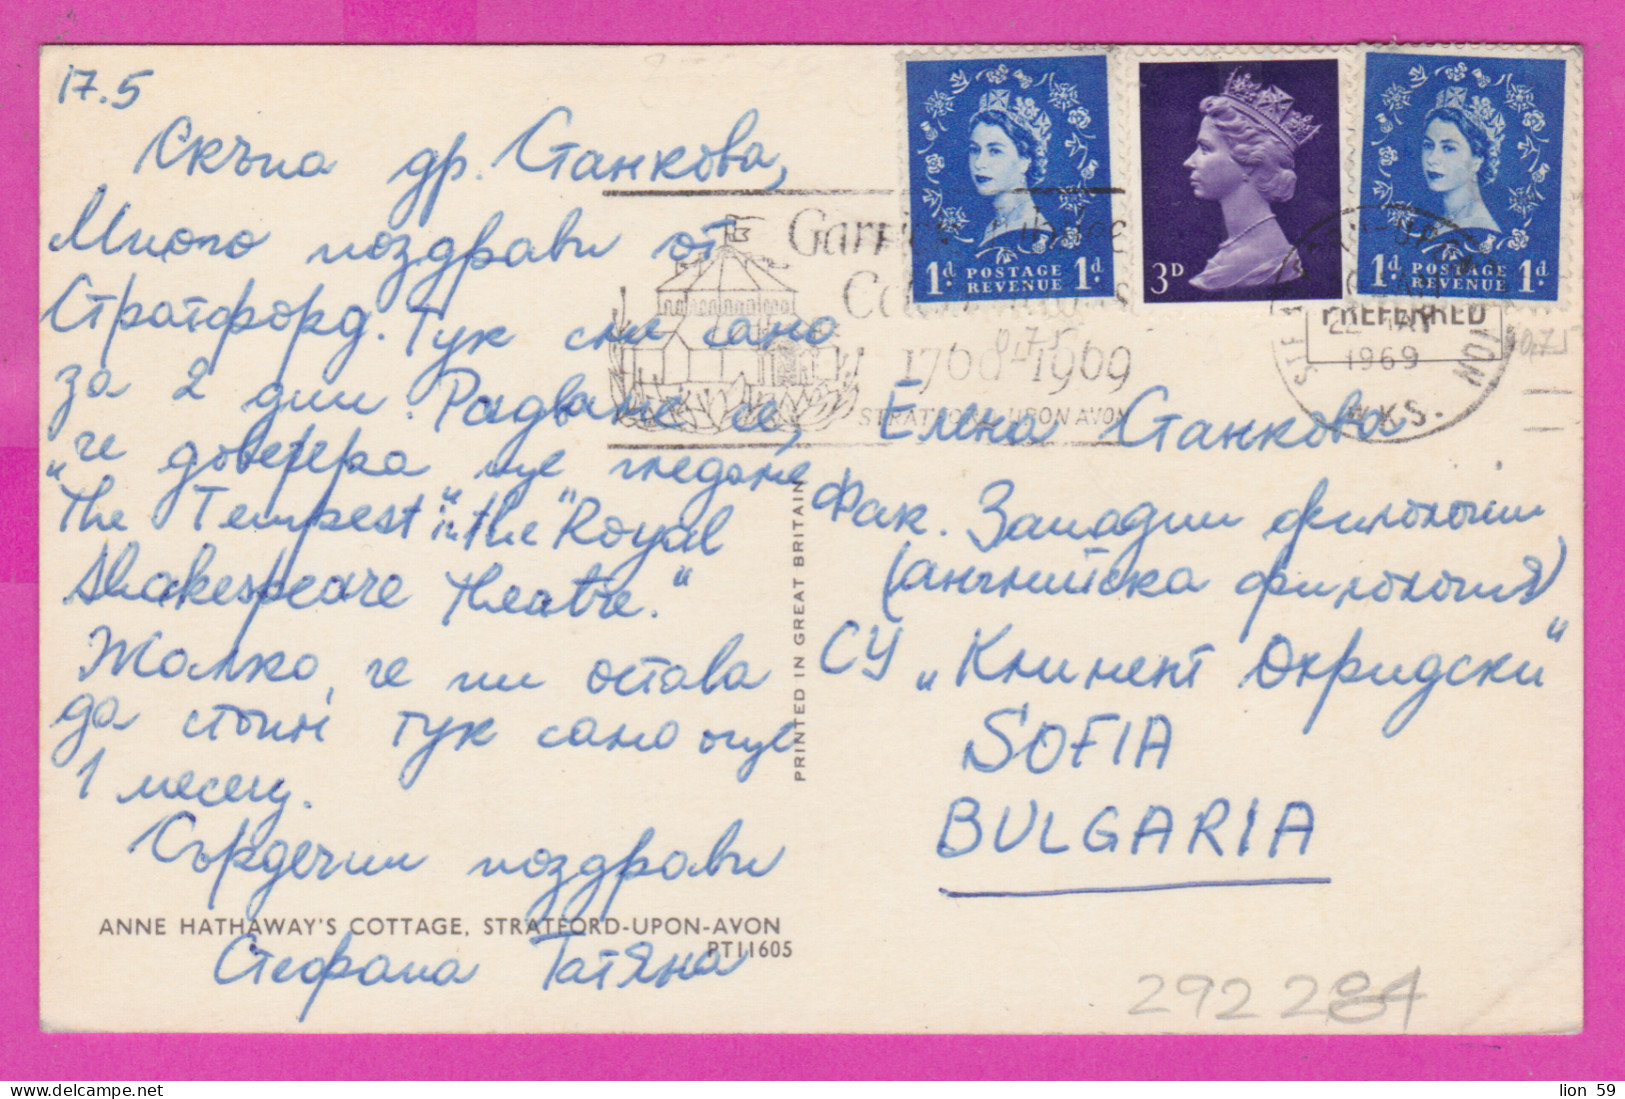 17.5
Скъпа др. Станкова,
Много поздрави от
Стратфорд. Тук сме само
за 2 дни. Радваме се,
че довечера ще гледаме
"The Tempest" in the "Royal
Shakespeare Theatre."
Жалко, че ни остава
да стоим тук само още
1 месец.
Сърдечни поздрави
Стефана Татяна
ANNE HATHAWAY'S COTTAGE, STRATFORD-UPON-AVON
PT11605
PRINTED IN GREAT BRITAIN
1d. POSTAGE REVENUE 1d.
3D
1d. POSTAGE REVENUE 1d.
1769-1969
STRATFORD-UPON-AVON
PREFERRED
1969
WKS.
Елена Станкова
Фак. Западни филологии
(английска филология)
СУ „Климент Охридски"
SOFIA
BULGARIA
292284
lion 59